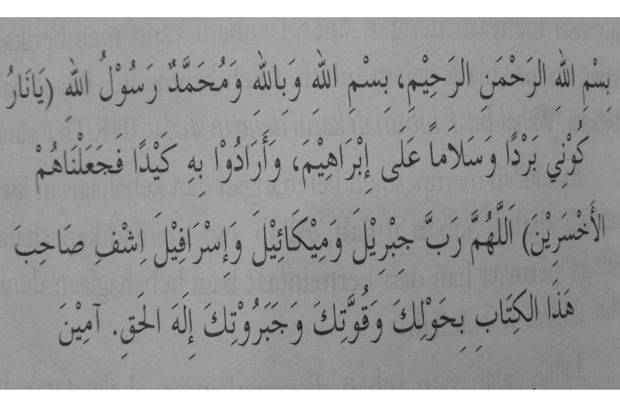 بِسْمِ اللهِ الرَحْمَنِ الرَحِيْمِ، بِسْمِ اللهِ وَبِاللهِ وَمُحَمَّدٌ رَسُوْلُ اللهِ (يَانَارُ
كُوْنِي بَرْدًا وَسَلاَماً عَلَى إِبْرَاهِيْمَ، وَأَرَادُوْا بِهِ كَيْدًا فَجَعَلْنَاهُمْ
الأَخْسَرِيْنَ) اَللَّهُمَّ رَبَّ جِبْرِيْلَ وَمِيْكَائِيْلَ وَإِسْرَافِيْلَ اِشْفِ صَاحِبَ
هَذَا الكِتَابِ بِحَوْلِكَ وَقُوَّتِكَ وَجَبَرُوْتِكَ إِلَهَ الحَقِ. آمِيْنَ